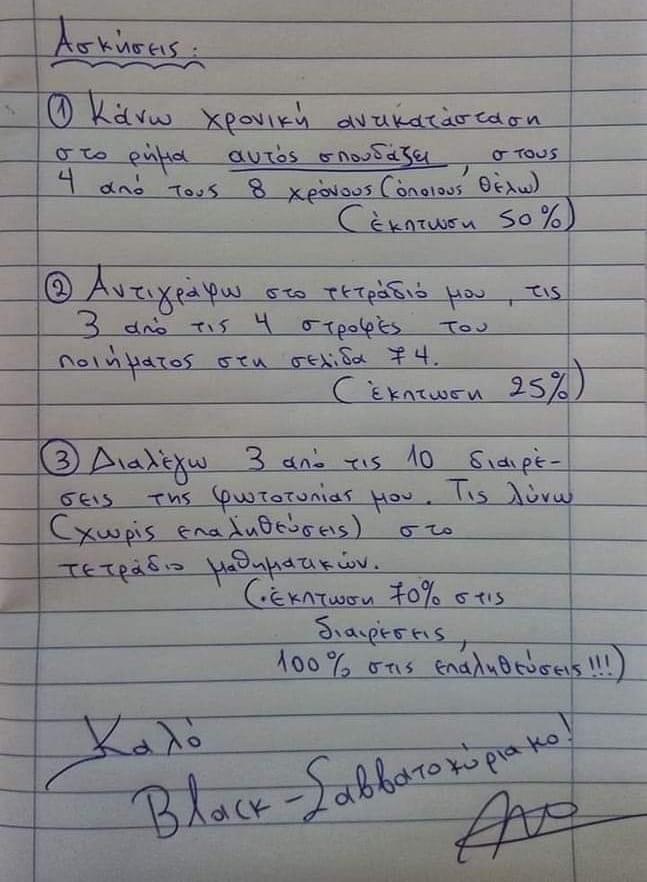 Ασκήσεις:
① Κάνω χρονική αντικατάσταση
στο ρήμα αυτός σπουδάζει, στους
4 από τους 8 χρόνους (όποιους θέλω)
(έκπτωση 50%)
② Αντιγράφω στο τετράδιό μου, τις
3 από τις 4 στροφές του
ποιήματος στη σελίδα 74.
(έκπτωση 25%)
③ Διαλέγω 3 από τις 10 διαιρέ-
σεις της φωτοτυπίας μου. Τις λύνω
(χωρίς επαληθεύσεις) στο
τετράδιο μαθηματικών.
(έκπτωση 70% στις
διαιρέσεις,
100% στις επαληθεύσεις!!!)
Καλό
Black-Σαββατοκύριακο!